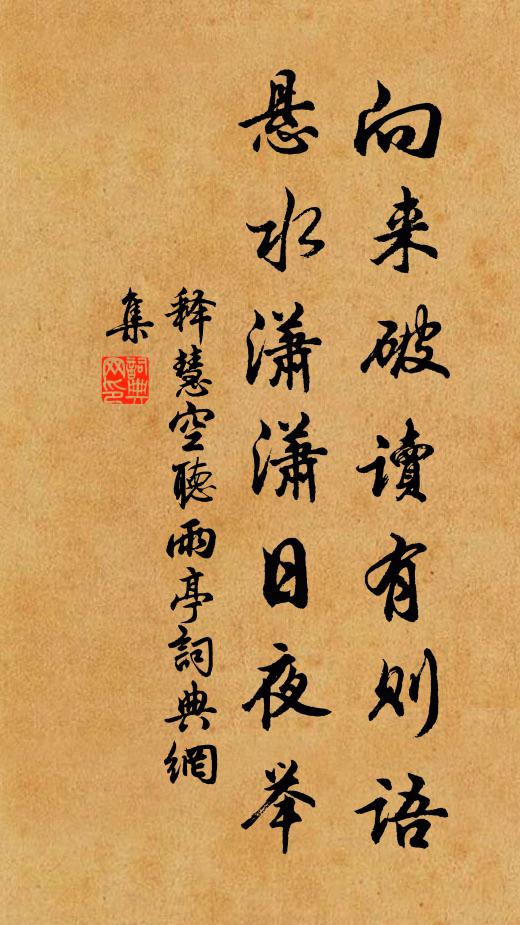 向来破读有则语
悬水潇潇日夜举
释慧空聽雨亭詞典網
集
詞典
网印